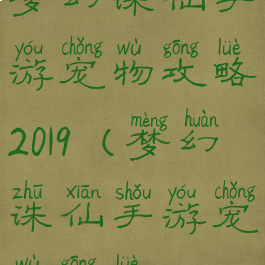 梦幻诛仙手
yóu chǒng wù gōng lüè
游宠物攻略
mèng huàn
2019（梦幻
zhū xiān shǒu yóu chǒng
诛仙手游宠
wù gōng lüè